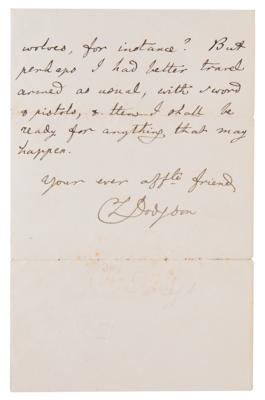 wolves, for instance? But
perhaps I had better travel
armed as usual, with sword
& pistols, & then I shall be
ready for anything that may
happen.
Your ever affte friend,
C L Dodgson